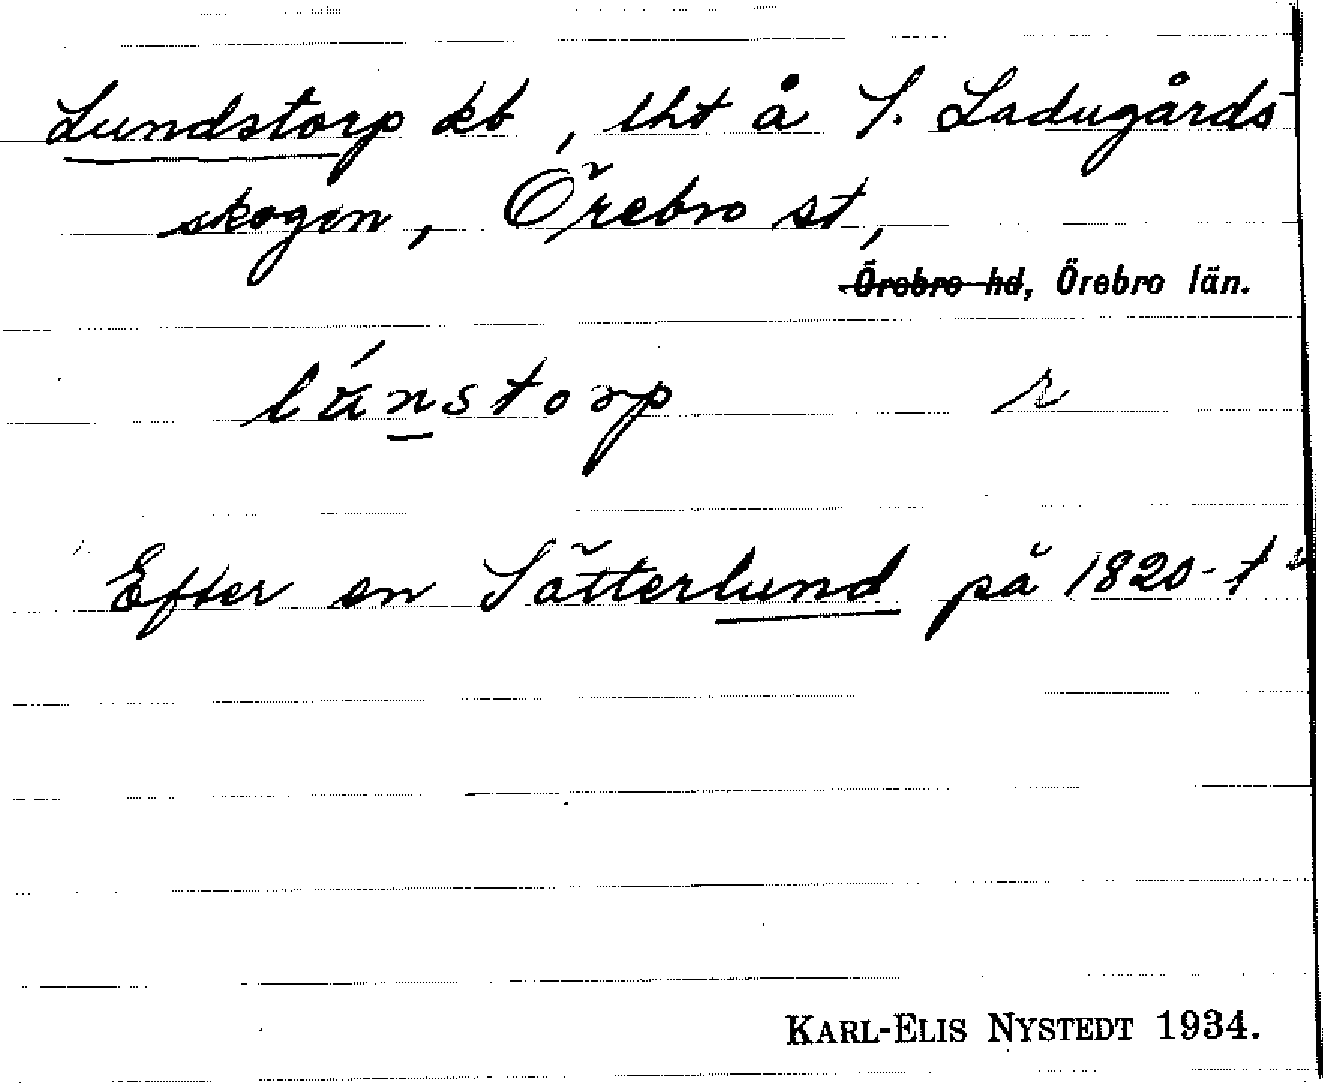 Lundstorp kb, lht å S. Ladugårds
skogen, Örebro st,
Örebro hd, Örebro län.
lúnstorp r
Efter en Sätterlund på 1820-t
KARL-ELIS NYSTEDT 1934.